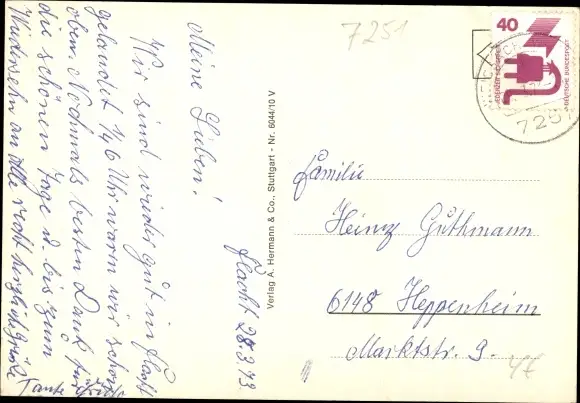 Meine Lieben!
Flacht 28.3.73
Wir sind wieder gut in Flacht
gelandet 1/4 6 Uhr waren wir schon
oben. Nochmals besten Dank für
die schönen Tage u. bis zum
Wiedersehn an Alle recht herzliche Grüße
Tante
Verlag A. Hermann & Co., Stuttgart - Nr. 6044/10 V
7251
40
DEUTSCHE BUNDESPOST
725
Familie
Heinz Guthmann
6148 Heppenheim
Marktstr. 9.